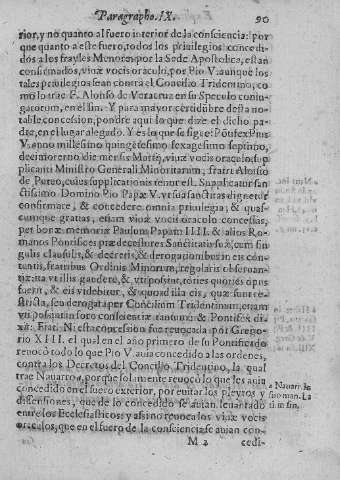 Paragrapho. IX. 90
rior, y no quanto al fuero interior de la consciencia: por
que quanto a este fuero, todos los privilegios concedi-
dos a los frayles Menores por la Sede Apostolica, estan
confirmados, viuæ vocis oraculo, por Pio V. aunque los
tales privilegios sean contra el Concilio Tridentino, co
mo lo trae F. Alonso de Veracruz en su Speculo coniu-
gatorum, en el fin. Y para mayor certidũbre desta no-
table concession, pondre aqui lo que dize el dicho pa-
dre, en el lugar alegado. Y es lo que se sigue: Põtifex Pius
V. anno millesimo quingẽtesimo sexagesimo septimo,
decimotertio die mensis Martij, viuæ vocis oraculo, su
plicanti Ministro Generali Minoritarum, fratri Aloisio
de Puteo, cuius supplicationis tenor est. Supplicatur san
ctissimo Domino Pio Papæ V. vt sua sanctitas dignetur
confirmare, & concedere omnia privilegia, & quas-
cumque gratias, etiam viuæ vocis oraculo concessas,
per bonæ memoriæ Paulum Papam IIII. & alios Ro-
manos Pontifices prædecessores Sanctitatis suæ, cum sin
gulis clausulis, & decretis, & derogationibus in eis con-
tentis, fratribus Ordinis Minorum, regularis obseruan-
tiæ: ita vt illis gaudere, & vti possint, toties quoties opus
fuerit, & eis videbitur, & quod illa eis, quæ sunt re-
stricta, seu derogata per Concilium Tridentinum, etiam
vti possint in foro conscientiæ tantum: & Pontifex di-
xit: Fiat. Ni esta concession fue reuocada por Grego-
rio XIII. el qual en el año primero de su Pontificado
reuocò todo lo que Pio V. auia concedido a las ordenes,
contra los Decretos del Concilio Tridentino, la qual
trae Nauarro a, porque solamente reuocò lo que les auia
concedido en el fuero exterior, por euitar los pleytos y
dissensiones, que de lo concedido se auian leuantado
entre los Ecclesiasticos: y assi no reuoca los viuæ vocis
oraculos, que en el fuero de la consciencia se auian con-
a Nauarr. in
suo man. La
tin. in fin.
M 2 cedi-